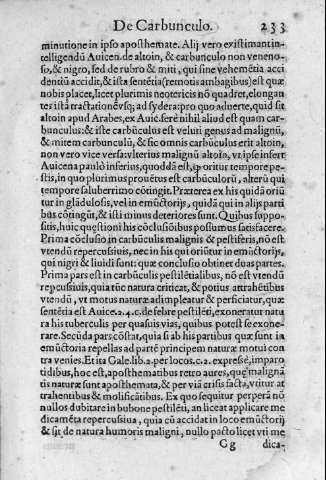 De Carbunculo. 233
minutione in ipso aposthemate. Alij vero existimant in-
telligendū Auicen. de altoin, & carbunculo non veneno-
so, & nigro, sed de rubro & miti, qui sine vehemētia acci
dentiū accidit, & ista sentētia (remotis ambagibus) est quæ
nobis placet, licet plurimis neotericis nō quadret, elongan
tes istā tractationē vsq; ad sydera: pro quo aduerte, quid sit
altoin apud Arabes, ex Auic. ferè nihil aliud est quam car-
bunculus: & iste carbūculus est veluti genus ad malignū,
& mitem carbunculū, & sic omnis carbūculus erit altoin,
non vero vice versa: vlterius malignū altoin, vt ipse inseri
Auicena paulò inferius, quoddā est, oritur tempore pe-
stis, in quo plurimus prouētus est carbūculorū, alterū qui
tempore saluberrimo cōtingit. Præterea ex his quidā oriū
tur in glādulosis, vel in emūctorijs, quidā qui in alijs parti
bus cōtingūt, & isti minus deteriores sunt. Quibus suppo-
sitis, huic quæstioni his cōclusiōibus possumus satisfacere.
Prima cōclusio, in carbūculis malignis & pestiferis, nō est
vtendū repercussiuis, nec in his qui oriūtur in emūctorijs,
qui nigri & liuidi sunt: quæ conclusio obtinet duas partes.
Prima pars est in carbūculis pestilētialibus, nō est vtendū
repcussiuis, quia tūc natura criticat, & potius attrahētibus
vtendū, vt motus naturæ adimpleatur & perficiatur, quæ
sentētia est Auice. 2. 4. c. de febre pestilēti, exoneratur natu
ra his tuberculis per quasuis vias, quibus potest se exone-
rare. Secūda pars cōstat, quia si ab his partibus quæ sunt in
emūctoria repellas ad partē principem naturæ motui con
tra venies. Et ita Gale. lib. 2. per locos. c. 2. expressè, imparo
tidibus, hoc est, aposthematibus retro aures, quę malignā
tis naturæ sunt aposthemata, & per viā crisis facta, vtitur at
trahentibus & molificātibus. Ex quo sequitur perperā nō
nullos dubitare in bubone pestilēti, an liceat applicare me
dicamēta repercussiua, quia cū accidat in loco emūctorij
& sit de natura humoris maligni, nullo pacto licet vti me
Gg dica-